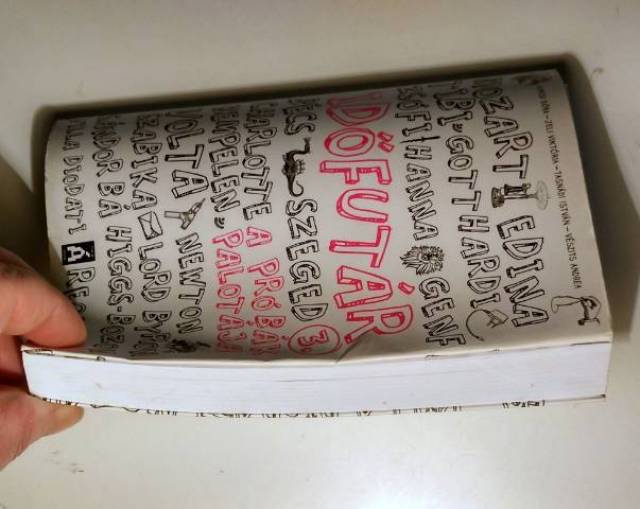 VÁN – ZELI VIKTÓRIA – TASNÁDI ISTVÁN – VÉSZITS ANDREA
MOZART EDINA
TIBI GOTTHARDI
ZSÓFI HANNA GENF
IDŐFUTÁR
PÉCS SZEGED 3.
CHARLOTTE A PRÓBÁK
KEMPELEN PALOTÁJA
VOLTA NEWTON
SZABIKA LORD BYRON
SÁNDOR BÁ HIGGS-BOZ
VILLA DIODATI Á